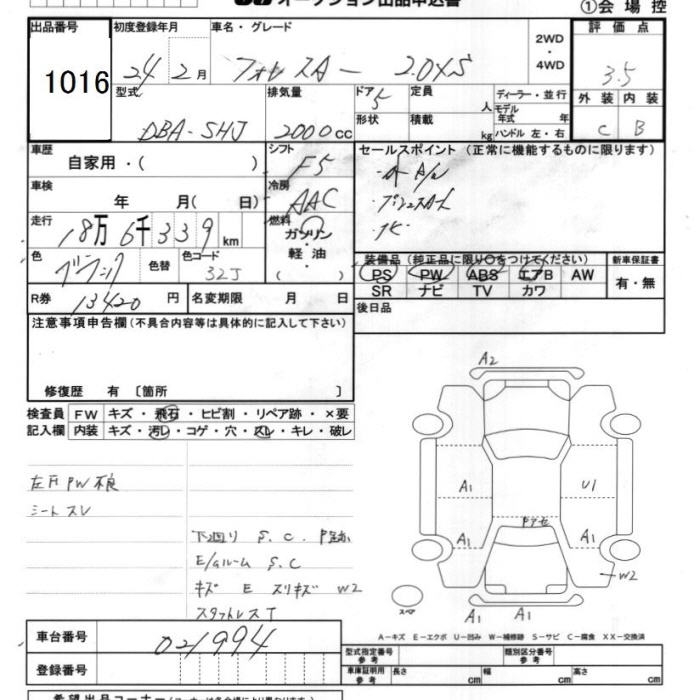 オークション出品申込書
①会場控
出品番号
1016
初度登録年月
24 2月
車名・グレード
フォレスター 2.0XS
2WD
・
4WD
評価点
3.5
外装 内装
C B
型式
DBA-SHJ
排気量
2000cc
ドア
5
形状
定員 人
積載 kg
ディーラー・並行
モデル年式 年
ハンドル 左・右
車歴
自家用・( )
シフト
F5
セールスポイント (正常に機能するものに限ります)
・プッシュスタート
車検
年 月( 日)
冷房
AAC
走行
18万6千339km
燃料
ガソリン
・
軽油
色
色替
色コード
32J
装備品(純正品に限り○をつけてください)
PS PW ABS エアB AW
SR ナビ TV カワ
新車保証書
有・無
R券
13420円
名変期限 月 日
後日品
注意事項申告欄(不具合内容等は具体的に記入して下さい)
修復歴 有 〔箇所 〕
検査員記入欄
FW キズ・飛石・ヒビ割・リペア跡・×要
内装 キズ・汚レ・コゲ・穴・スレ・キレ・破レ
左F PW不良
シートスレ
下廻り S.C. P跡
E/gルーム S.C
キズ E スリキズ W2
スタットレスT
A2
A1
U1
Pアセ
A1
A1
W2
スペア
A1
A1
A-キズ E-エクボ U-凹み W-補修跡 S-サビ C-腐食 XX-交換済
車台番号
021994
登録番号
型式指定番号
参考
類別区分番号
参考
車庫証明用
参考
長さ cm
幅 cm
高さ cm
希望出品コーナー